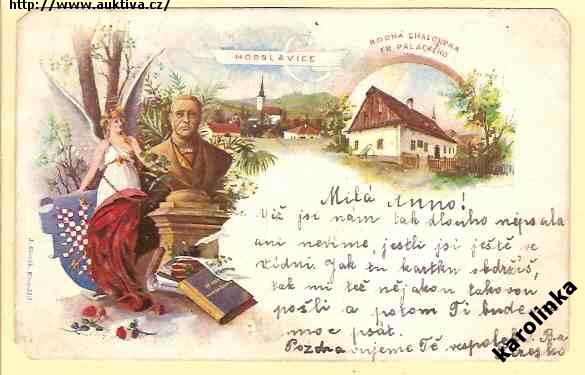 http://www.auktiva.cz/
HODSLAVICE
RODNÁ CHALOUPKA
FR. PALACKÉHO.
Milá Anno!
Již jsi nám tak dlouho nepsala
ani nevíme, jestli jsi ještě ve
Vídni. Jak tu kartku obdržíš,
tak mi též nějakou takovou
pošli a potom Ti bude
moc psát.
Pozdravujeme Tě vespolek.
karolinka